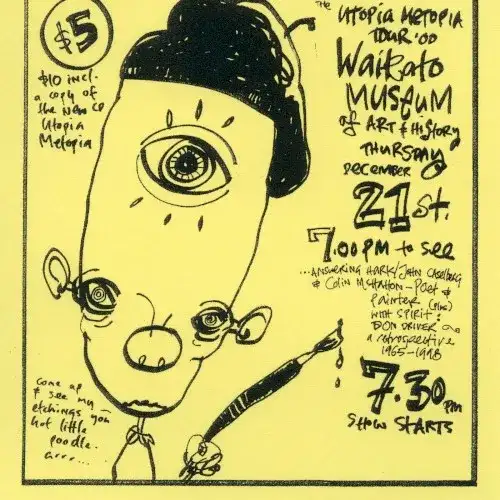 $5
$10 incl.
a copy of
the New CD
Utopia
Metopia
The UTOPIA METOPIA
TOUR '00
Waikato
MUSEUM
of ART & HISTORY
THURSDAY
DECEMBER
21st.
7.00PM to see
...ANSWERING HARK/JOHN CASELBERG
& Colin McCahon - Poet &
Painter (plus)
WITH SPIRIT:
DON DRIVER
a retrospective
1965-1998
7.30PM
SHOW STARTS
Come up
& see my
etchings you
hot little
poodle.
arrr...